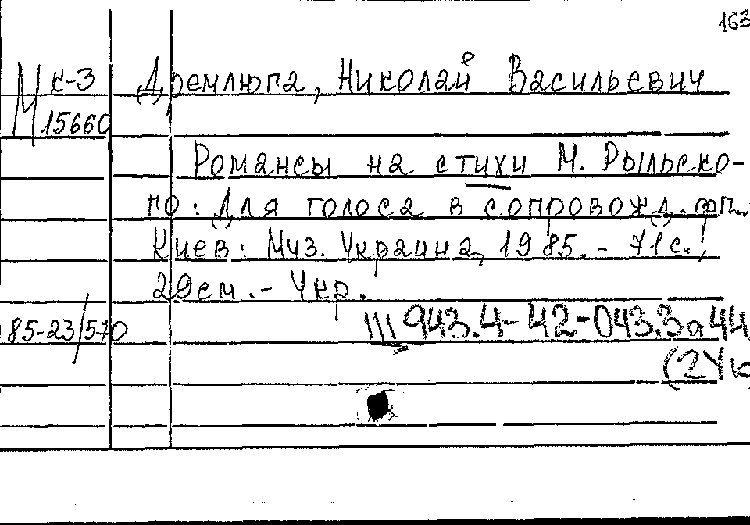 163
М с-3 Дремлюга, Николай Васильевич
15660
Романсы на стихи М. Рыльско-
го: Для голоса в сопровожд. фп.-
Киев: Муз. Украина, 1985.- 71с.;
29см.- Укр.
85-23/570 Ш943.4-42-043.3а44
(2Ук